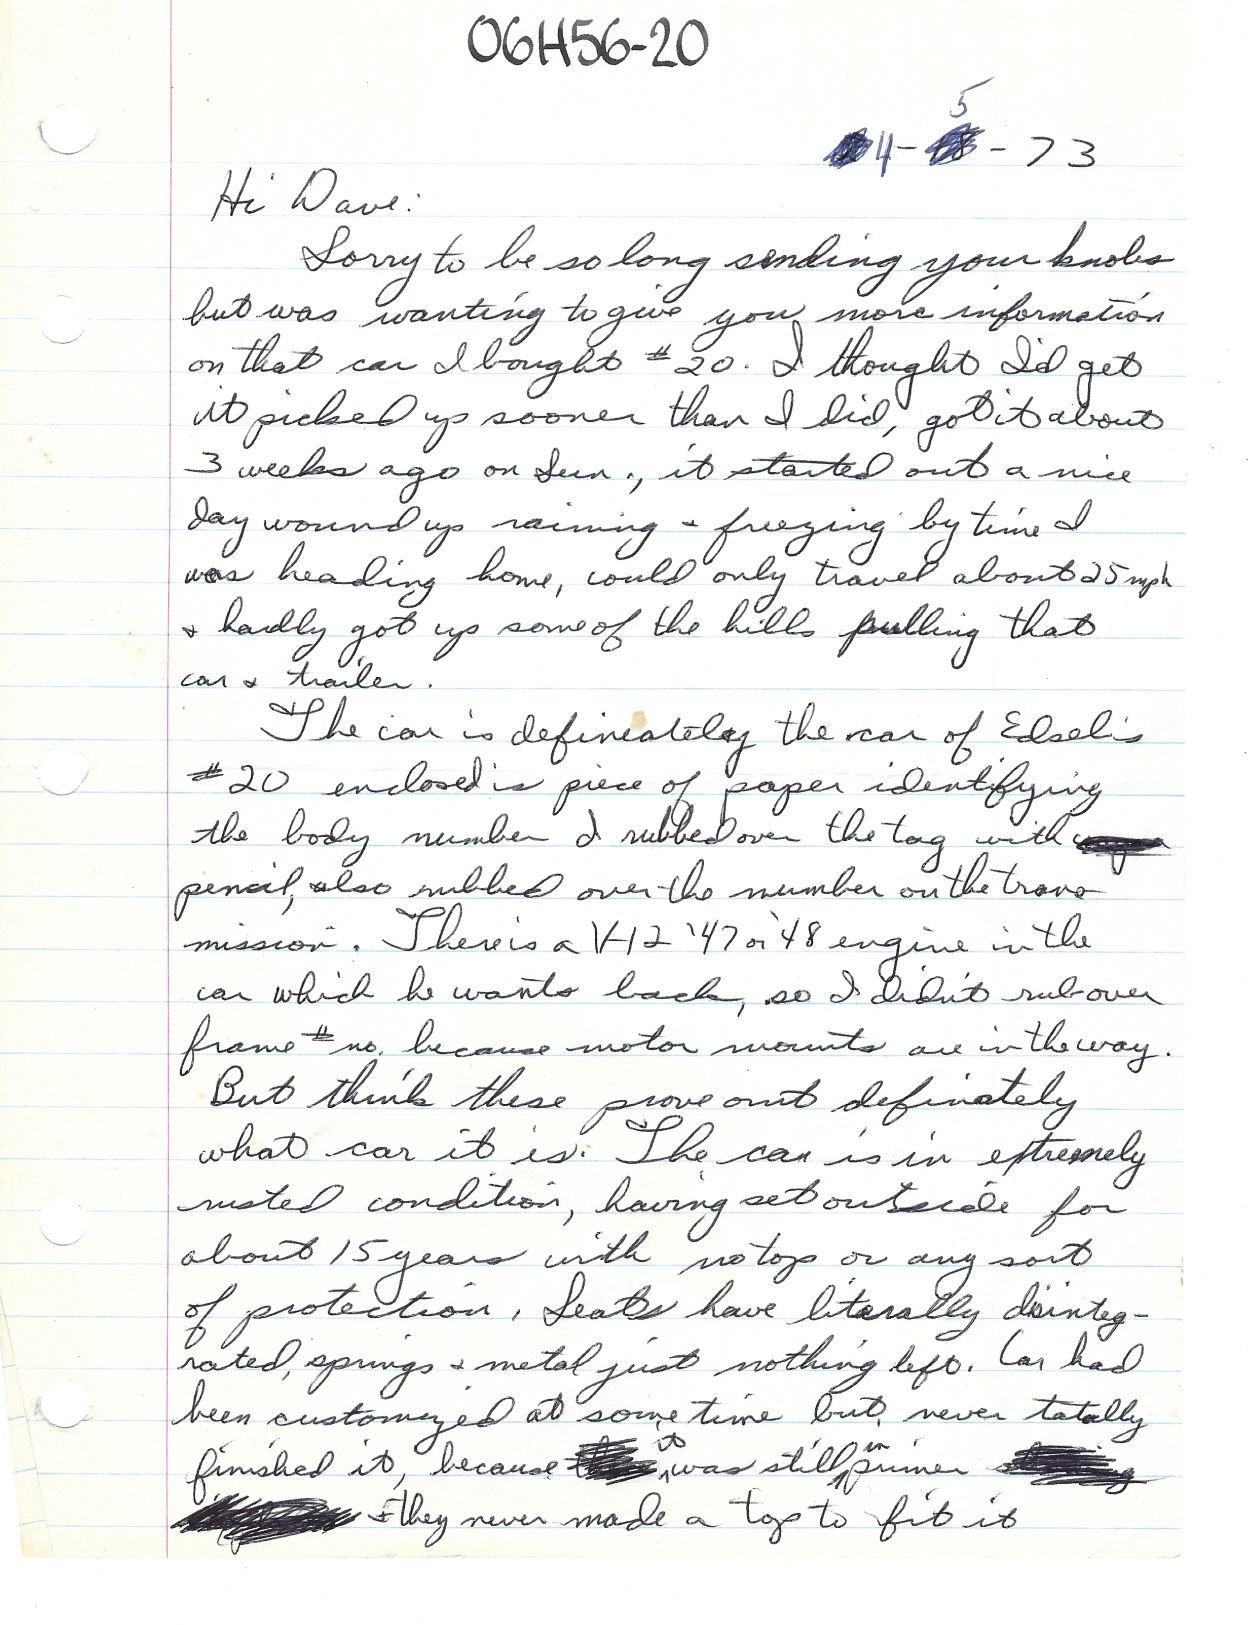 06H56-20
5
4- -73
Hi Dave:
Sorry to be so long sending your knobs
but was wanting to give you more information
on that car I bought #20. I thought I'd get
it picked up sooner than I did, got it about
3 weeks ago on Sun., it started out a nice
day wound up raining & freezing by time I
was heading home, could only travel about 25 mph
& hardly got up some of the hills pulling that
car & trailer.
The car is defineately the car of Edsel's
#20 enclosed is piece of paper identifying
the body number I rubbed over the tag with
pencil, also rubbed over the number on the trans-
mission. There is a V-12 '47 or '48 engine in the
car which he wants back, so I didn't rub over
frame # no. because motor mounts are in the way.
But think these prove out definately
what car it is. The car is in extremely
rusted condition, having set outside for
about 15 years with no top or any sort
of protection. Seats have literally disinteg-
rated, springs & metal just nothing left. Car had
been customized at some time but never totally
finished it, because it was still in primer
& they never made a top to fit it